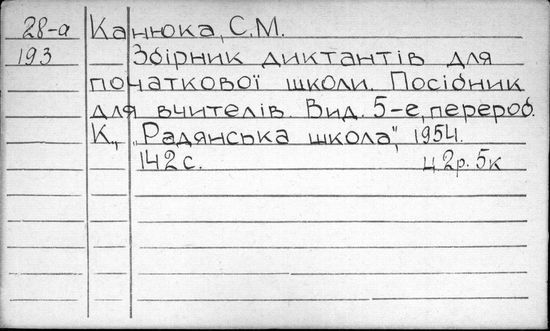 28-а Канюка, С.М.
193 Збірник диктантів для
початкової школи. Посібник
для вчителів. Вид. 5-е, перероб.
К., „Радянська школа", 1954.
142 с. ц 2р. 5к